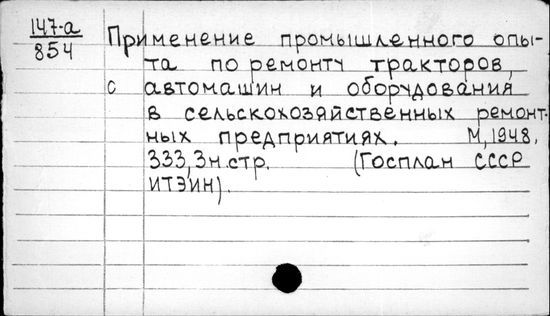 147-а
854
Применение промышленного опы-
та по ремонту тракторов,
с автомашин и оборудования
в сельскохозяйственных ремонт-
ных предприятиях. М, 1948.
333, 3н.стр. (Госплан СССР
ИТЭИН).